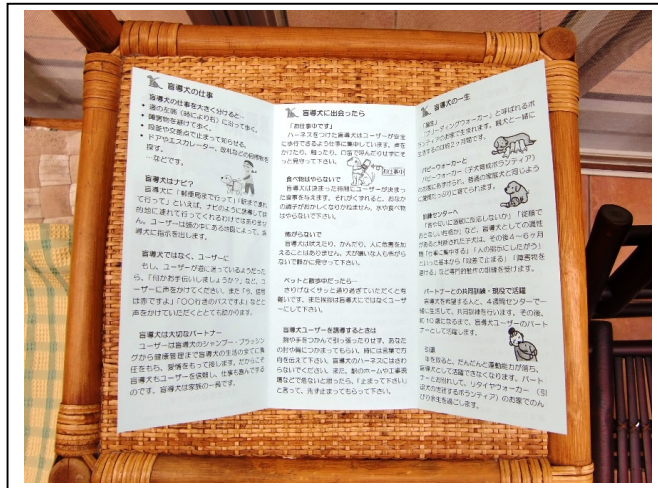 盲導犬の仕事
盲導犬の仕事を大きく分けると…
道の左端（時により右）に沿って歩く。
障害物を避けて歩く。
段差や交差点で止まって知らせる。
ドアやエスカレーター、改札などの目標物を
探す。
…などです。
盲導犬はナビ？
盲導犬に「郵便局まで行って」「駅まで連れ
て行って」といえば、ナビのように誘導して目
的地に連れて行ってくれるわけではありませ
ん。ユーザーは頭の中にある地図によって、盲
導犬に指示を出します。
盲導犬ではなく、ユーザーに
もし、ユーザーが道に迷っているようだった
ら、「何かお手伝いしましょうか？」など、ユ
ーザーに声をかけてください。また「今、信号
は赤ですよ」「〇〇行きのバスですよ」などと
声をかけていただくととても助かります。
盲導犬は大切なパートナー
ユーザーは盲導犬のシャンプー・ブラッシン
グから健康管理まで盲導犬の生活の全てに責
任をもち、愛情をもって接します。だからこそ
盲導犬もユーザーを信頼し、仕事も喜んでする
のです。盲導犬は家族の一員です。
盲導犬に出会ったら
「お仕事中です」
ハーネスをつけた盲導犬はユーザーが安全
に歩行できるよう仕事に集中しています。声を
かけたり、触ったり、口笛で呼んだりせずにそ
っと見守って下さい。
お仕事中
食べ物はやらないで
盲導犬は決まった時間にユーザーが決まっ
た食事を与えます。それがくずれると、おなか
の調子がおかしくなりかねません。水や食べ物
はやらないで下さい。
怖がらないで
盲導犬は吠えたり、かんだり、人に危害を加
えることはありません。犬が嫌いな人も怖がら
ないで静かに見守って下さい。
ペットと散歩中だったら…
さりげなくサッと通り過ぎていただくと有
難いです。また挨拶は盲導犬にではなくユーザ
ーにして下さい。
盲導犬ユーザーを誘導するときは
腕や手をつかんで引っ張ったりせず、あなた
の肘や肩につかまってもらい、時には言葉で方
向を伝えて下さい。盲導犬のハーネスにはさわ
らないでください。また、駅のホームや工事現
場などで危ないと思ったら、「止まって下さい」
と言って、先ず止まってもらって下さい。
盲導犬の一生
「誕生」
「ブリーディングウォーカー」と呼ばれるボ
ランティアのお家で生まれます。親犬と一緒に
生活するのは約2ヶ月間です。
パピーウォーカーと
パピーウォーカー（子犬飼育ボランティア）
のお家にあずけられ、普通の家庭犬と同じよう
に愛情たっぷりに育てられます。
訓練センターへ
「音や匂いに過敏に反応しないか」「従順で
おとなしい性格か」など、盲導犬としての適性
があると判断された子犬は、その後4～6ヶ月
間「仕事に集中する」「人の指示にしたがう」
といった基本から「段差で止まる」「障害物を
避ける」など専門的動作の訓練を受けます。
パートナーとの共同訓練・現役で活躍
盲導犬を希望する人と、4週間センターで一
緒に生活して、共同訓練を行います。その後、
約10歳になるまで、盲導犬ユーザーのパート
ナーとして活躍します。
引退
年を取ると、だんだんと運動能力が落ち、
盲導犬として活躍できなくなります。パート
ナーとお別れして、リタイヤウォーカー（引
退犬の世話するボランティア）のお家でのん
びり余生を過ごします。